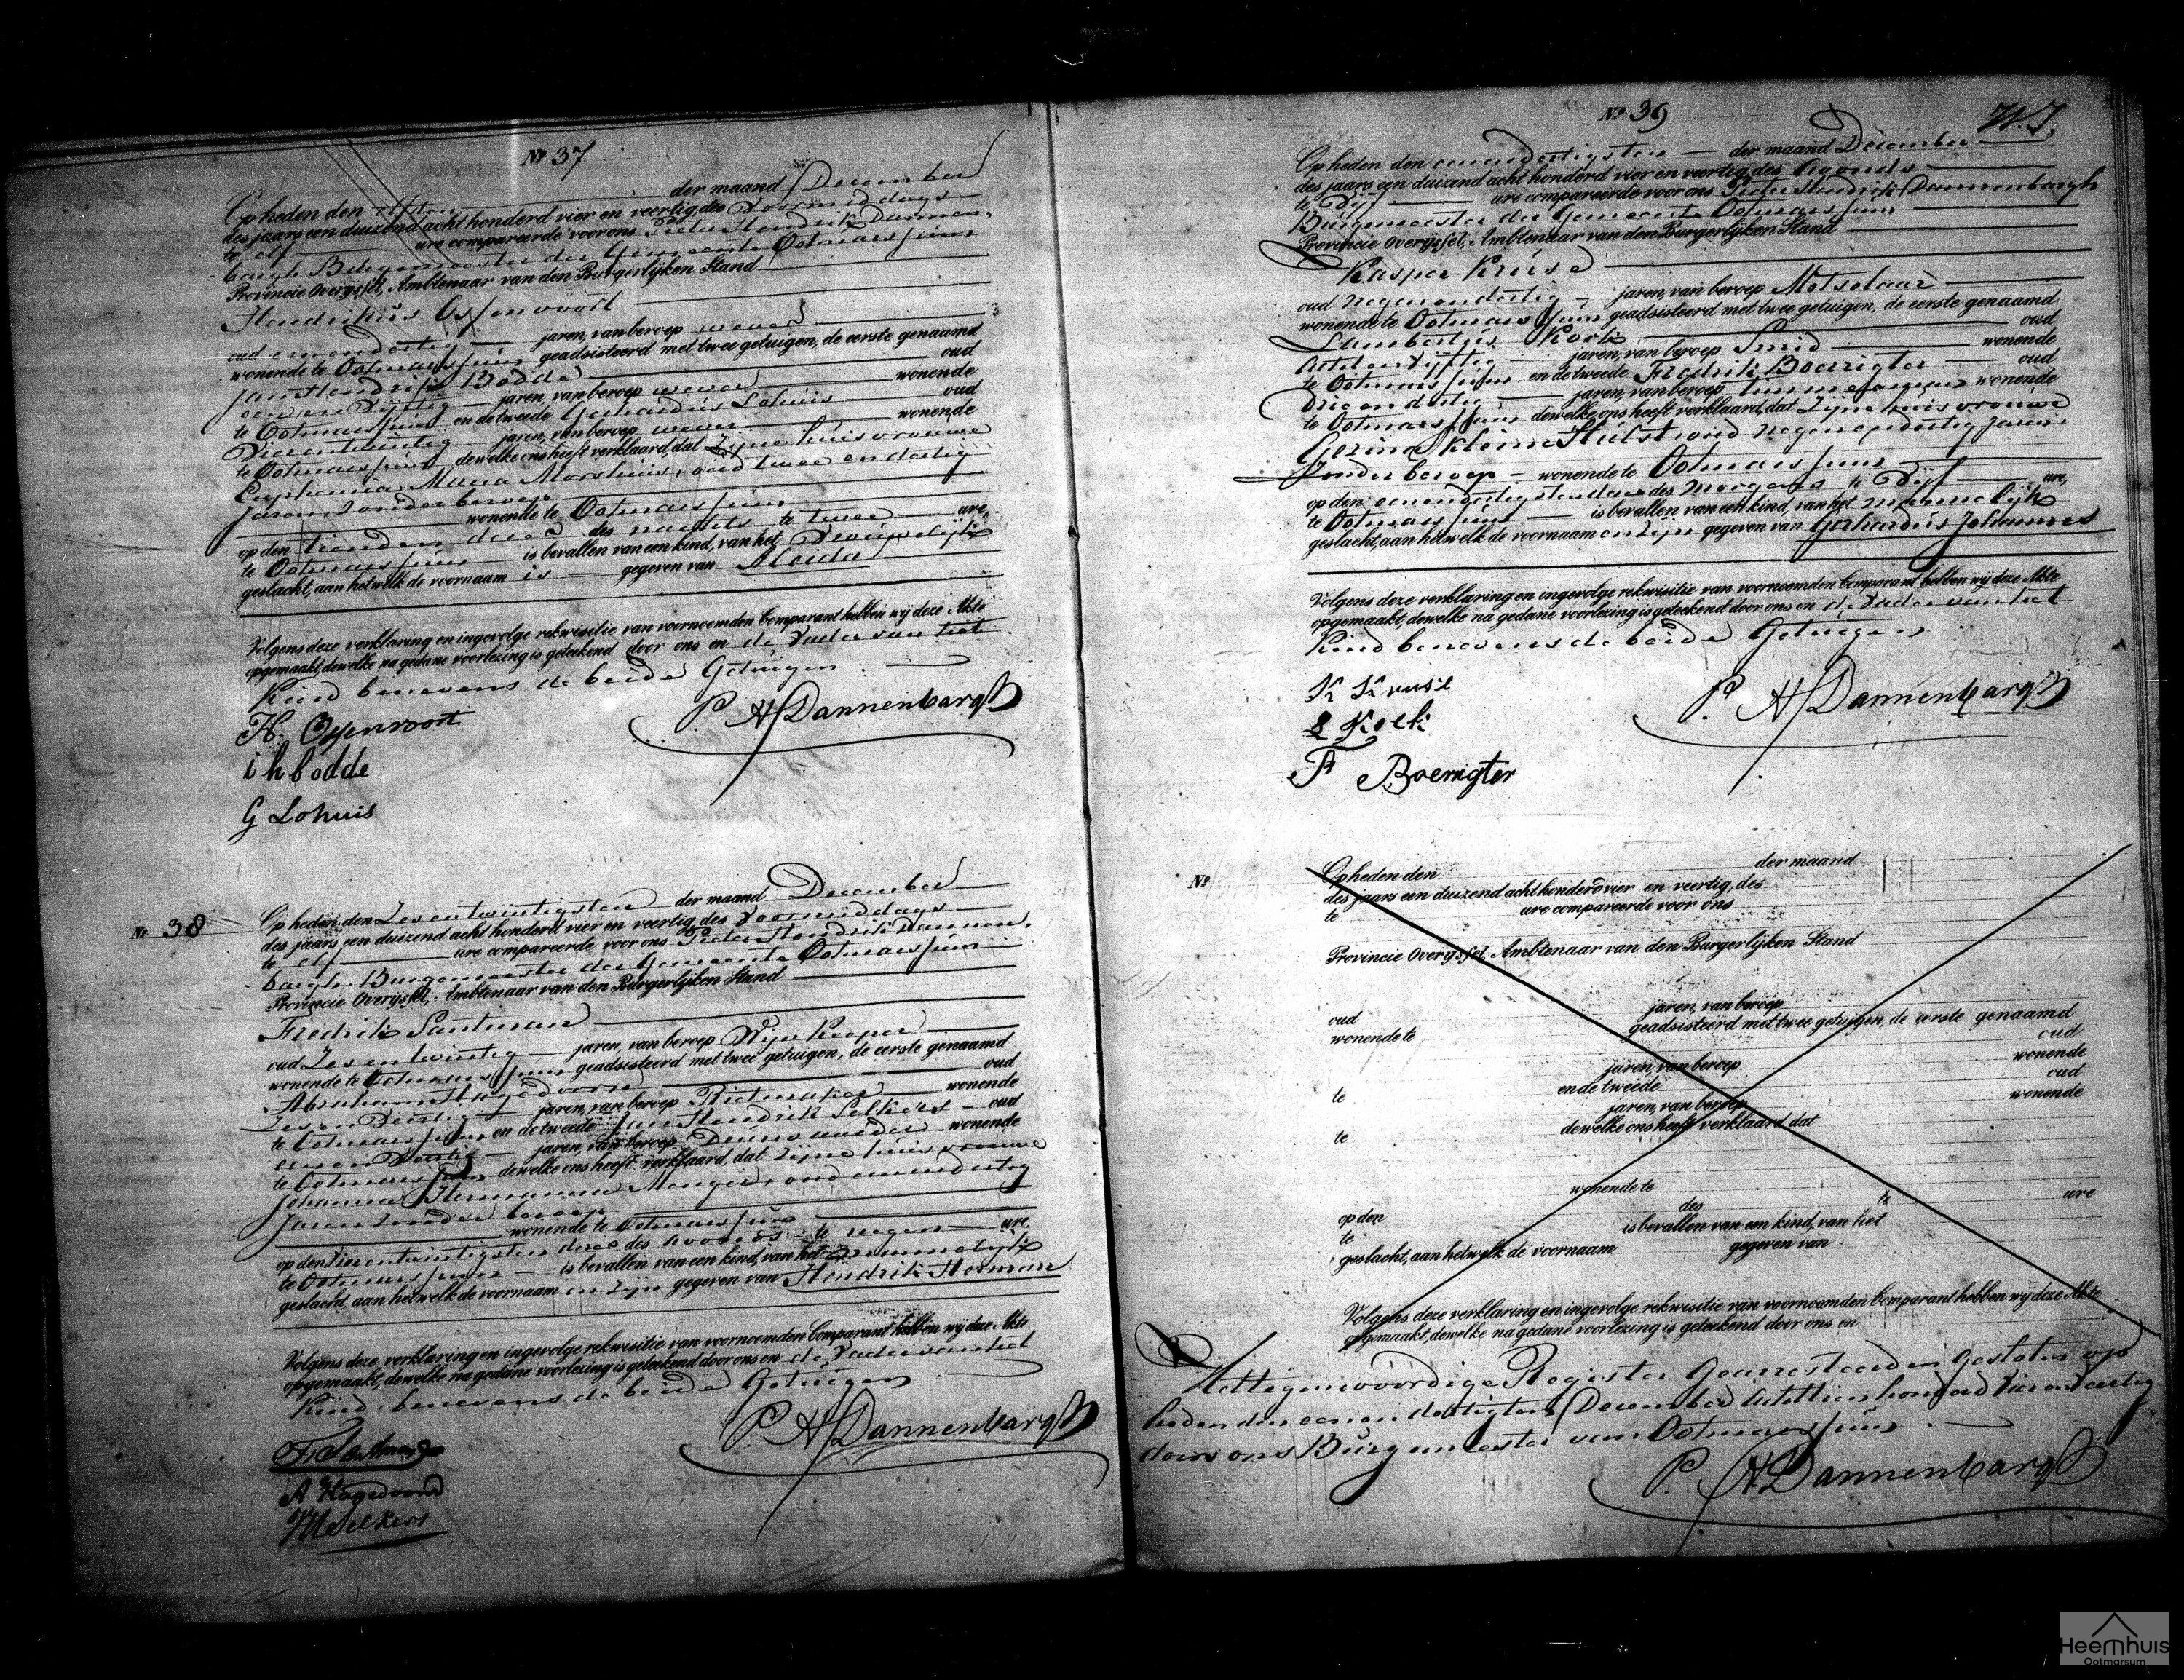 Nº 37
Op heden den elfden der maand December
des jaars een duizend acht honderd vier en veertig, des Voormiddags
te elf ure compareerde voor ons Pieter Hendrik Dannen-
bargh Burgemeester der Gemeente Ootmarssum
Provincie Overijssel, Ambtenaar van den Burgerlijken Stand
Hendrikus Ossenvoort
oud eenendertig jaren, van beroep wever
wonende te Ootmarssum geadsisteerd met twee getuigen, de eerste genaamd
Jan Hendrik Bodde oud
een en Vijftig jaren, van beroep wever wonende
te Ootmarssum en de tweede Gerhardus Lohuis oud
Vierentwintig jaren, van beroep wever wonende
te Ootmarssum dewelke ons heeft verklaard, dat Zijne huisvrouwe
Euphemia Maria Morshuis, oud twee en dertig
Jaren zonder beroep
wonende te Ootmarssum
op den tienden dezer des nachts te twee ure,
te Ootmarssum is bevallen van een kind, van het Vrouwelijk
geslacht, aan hetwelk de voornaam is gegeven van Aleida
Volgens deze verklaring en ingevolge rekwisitie van voornoemden Comparant hebben wij deze Akte
opgemaakt, dewelke na gedane voorlezing is geteekend door ons en de Vader van het
Kind benevens de beide Getuigen
H. Ossenvoort P. H. Dannenbargh
i h bodde
G Lohuis
Nº 38
Op heden den Zesentwintigsten der maand December
des jaars een duizend acht honderd vier en veertig, des Voormiddags
te elf ure compareerde voor ons Pieter Hendrik Dannen-
bargh Burgemeester der Gemeente Ootmarssum
Provincie Overijssel, Ambtenaar van den Burgerlijken Stand
Fredrik Santman
oud Zesentwintig jaren, van beroep Wijnkooper
wonende te Ootmarssum geadsisteerd met twee getuigen, de eerste genaamd
Abraham Hagedoorn oud
Zes en Veertig jaren, van beroep Rietmaker wonende
te Ootmarssum en de tweede Jan Hendrik Selkers oud
een en Veertig jaren, van beroep wonende
te Ootmarssum dewelke ons heeft verklaard, dat Zijne huisvrouwe
Johanna Hermanna Menger, oud eenendertig
Jaren zonder beroep
wonende te Ootmarssum
op den Vierentwintigsten dezer des avonds te negen ure,
te Ootmarssum is bevallen van een kind, van het mannelijk
geslacht, aan hetwelk de voornaam en zijn gegeven van Hendrik Herman
Volgens deze verklaring en ingevolge rekwisitie van voornoemden Comparant hebben wij deze Akte
opgemaakt, dewelke na gedane voorlezing is geteekend door ons en de Vader van het
Kind benevens de beide Getuigen
P. H. Dannenbargh
F. Santman
A Hagedoorn
JHSelkers
Nº 39
Op heden den eenendertigsten der maand December
des jaars een duizend acht honderd vier en veertig, des Avonds
te Vijf ure compareerde voor ons Pieter Hendrik Dannenbargh
Burgemeester der Gemeente Ootmarssum
Provincie Overijssel, Ambtenaar van den Burgerlijken Stand
Kasper Kruse
oud Negenendertig jaren, van beroep Metselaar
wonende te Ootmarssum geadsisteerd met twee getuigen, de eerste genaamd
Lambertus Kock oud
Achtenvijftig jaren, van beroep Smid wonende
te Ootmarssum en de tweede Fredrik Boerrigter oud
Drie en dertig jaren, van beroep timmerman wonende
te Ootmarssum dewelke ons heeft verklaard, dat Zijne huisvrouwe
Gezina Kleine Hulst, oud Negenendertig Jaren
zonder beroep wonende te Ootmarssum
op den eenendertigsten dezer des Morgens te Vijf ure,
te Ootmarssum is bevallen van een kind, van het mannelijk
geslacht, aan hetwelk de voornaam en zijn gegeven van Gerhardus Johannes
Volgens deze verklaring en ingevolge rekwisitie van voornoemden Comparant hebben wij deze Akte
opgemaakt, dewelke na gedane voorlezing is geteekend door ons en de Vader van het
Kind benevens de beide Getuigen
K Kruse P. H. Dannenbargh
L Kock
F Boerrigter
Nº
Op heden den der maand
des jaars een duizend acht honderd vier en veertig, des
te ure compareerde voor ons
Provincie Overijssel, Ambtenaar van den Burgerlijken Stand
oud jaren, van beroep
wonende te geadsisteerd met twee getuigen, de eerste genaamd
oud
jaren, van beroep wonende
te en de tweede oud
jaren, van beroep wonende
te dewelke ons heeft verklaard dat
wonende te
op den des te ure
te is bevallen van een kind, van het
geslacht, aan hetwelk de voornaam gegeven van
Volgens deze verklaring en ingevolge rekwisitie van voornoemden Comparant hebben wij deze Akte
opgemaakt, dewelke na gedane voorlezing is geteekend door ons en
Het tegenwoordige Register Gearresteerd en Gesloten op
heden den eenendertigsten December Achttienhonderd Vier en Veertig
door ons Burgemeester van Ootmarssum
P. H. Dannenbargh
Heemhuis
Ootmarsum